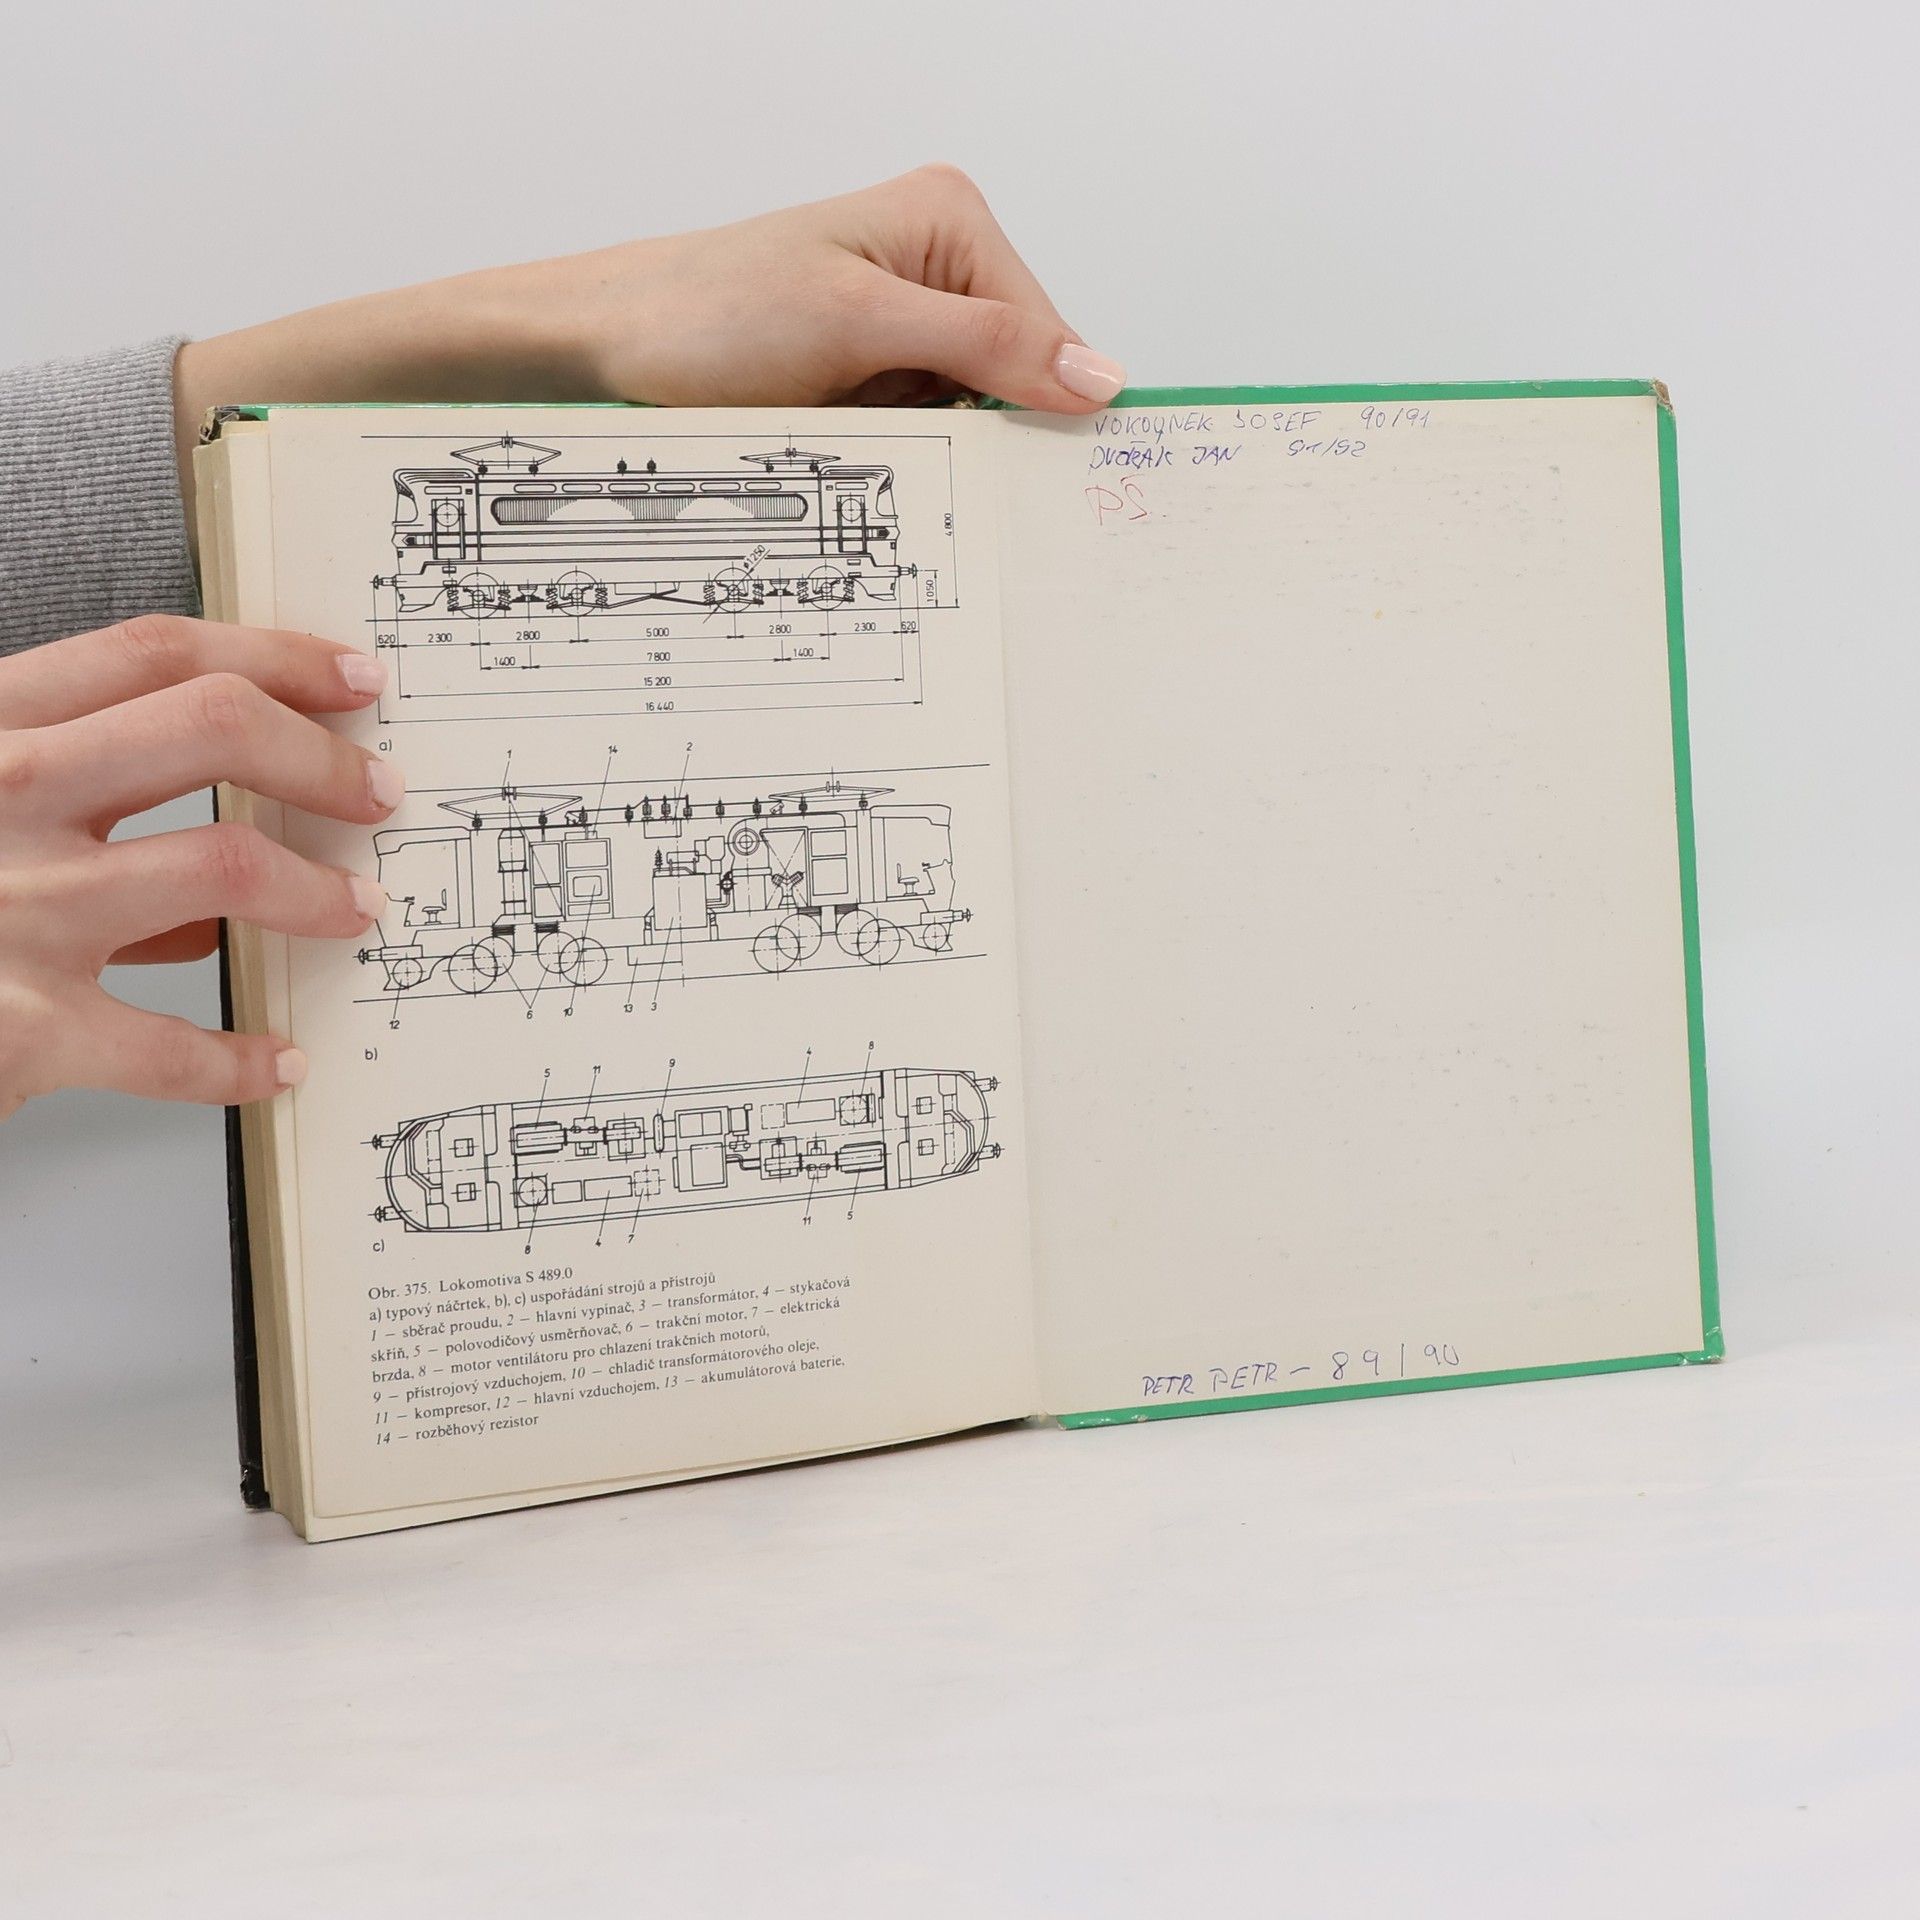 4 800
1 050
ø 1250
620 2 300 2 800 5 000 2 800 2 300 620
1 400 7 800 1 400
15 200
16 440
a)
1 14 2
12 6 10 13 3
b)
5 11 9 4 8
8 4 7 11 5
c)
Obr. 375. Lokomotiva S 489.0
a) typový náčrtek, b), c) uspořádání strojů a přístrojů
1 — sběrač proudu, 2 — hlavní vypínač, 3 — transformátor, 4 — stykačová
skříň, 5 — polovodičový usměrňovač, 6 — trakční motor, 7 — elektrická
brzda, 8 — motor ventilátoru pro chlazení trakčních motorů,
9 — přístrojový vzduchojem, 10 — chladič transformátorového oleje,
11 — kompresor, 12 — hlavní vzduchojem, 13 — akumulátorová baterie,
14 — rozběhový rezistor
JOSEF 90/91
DVOŘÁK JAN 91/92
PŠ.
PETR PETR — 89/90